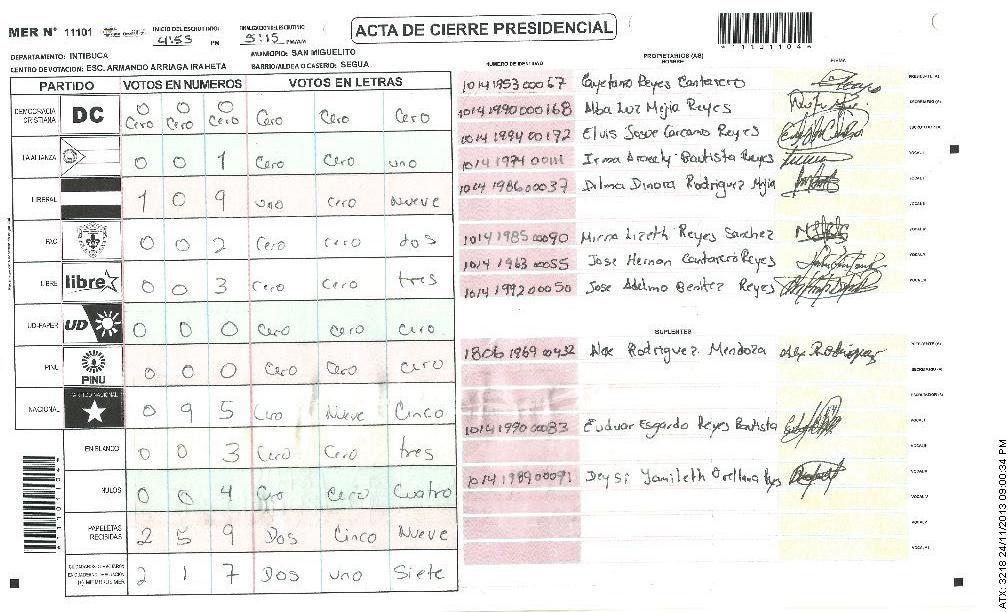 MER N° 11101
INICIO DEL ESCRUTINIO:
4:53 PM
FINALIZACION DEL ESCRUTINIO
5:15 PM/AM
ACTA DE CIERRE PRESIDENCIAL
* 1 1 1 0 1 1 0 4 *
DEPARTAMENTO: INTIBUCA
MUNICIPIO: SAN MIGUELITO
CENTRO DE VOTACION: ESC. ARMANDO ARRIAGA IRAHETA
BARRIO/ALDEA O CASERIO: SEGUA
PARTIDO VOTOS EN NUMEROS VOTOS EN LETRAS
DEMOCRACIA CRISTIANA DC 0 0 0 Cero Cero Cero Cero Cero Cero
LA ALIANZA 0 0 1 Cero Cero uno
LIBERAL 1 0 9 uno Cero Nueve
PAC 0 0 2 Cero cero dos
LIBRE libre 0 0 3 Cero cero tres
UD-FAPER UD 0 0 0 Cero Cero Cero
PINU PINU 0 0 0 Cero Cero Cero
NACIONAL PARTIDO NACIONAL 0 9 5 Cero Nueve Cinco
EN BLANCO 0 0 3 Cero Cero tres
NULOS 0 0 4 Cero Cero Cuatro
PAPELETAS RECIBIDAS 2 5 9 Dos Cinco Nueve
(+) MIEMBROS MER 2 1 7 Dos uno Siete
NUMERO DE IDENTIDAD PROPIETARIOS (AS) FIRMA
1014 1953 00067 Cayetano Reyes Cantarero PRESIDENTE (A)
1014 1990 000168 Alba Luz Mejia Reyes SECRETARIO (A)
1014 1994 00172 Elvis Josue Carcamo Reyes ESCRUTADOR (A)
1014 1974 00111 Irma Aracely Bautista Reyes VOCAL I
1014 1986 00037 Dilma Dinora Rodriguez Mejia VOCAL II
1014 1985 00090 Mirna Lizeth Reyes Sanchez
1014 1963 00055 Jose Hernan Cantarero Reyes
1014 1992 00050 Jose Adelmo Benitez Reyes
SUPLENTES
1806 1969 00432 Alex Rodriguez Mendoza Alex Rodriguez PRESIDENTE (A)
SECRETARIO (A)
ESCRUTADOR (A)
1014 1990 00083 Euduar Esgardo Reyes Bautista VOCAL I
VOCAL II
1014 1989 00091 Deysi Jamileth Orellana Reyes VOCAL III
VOCAL IV
VOCAL V
VOCAL VI
ATX: 3218 24/11/2013 09:00:34 PM